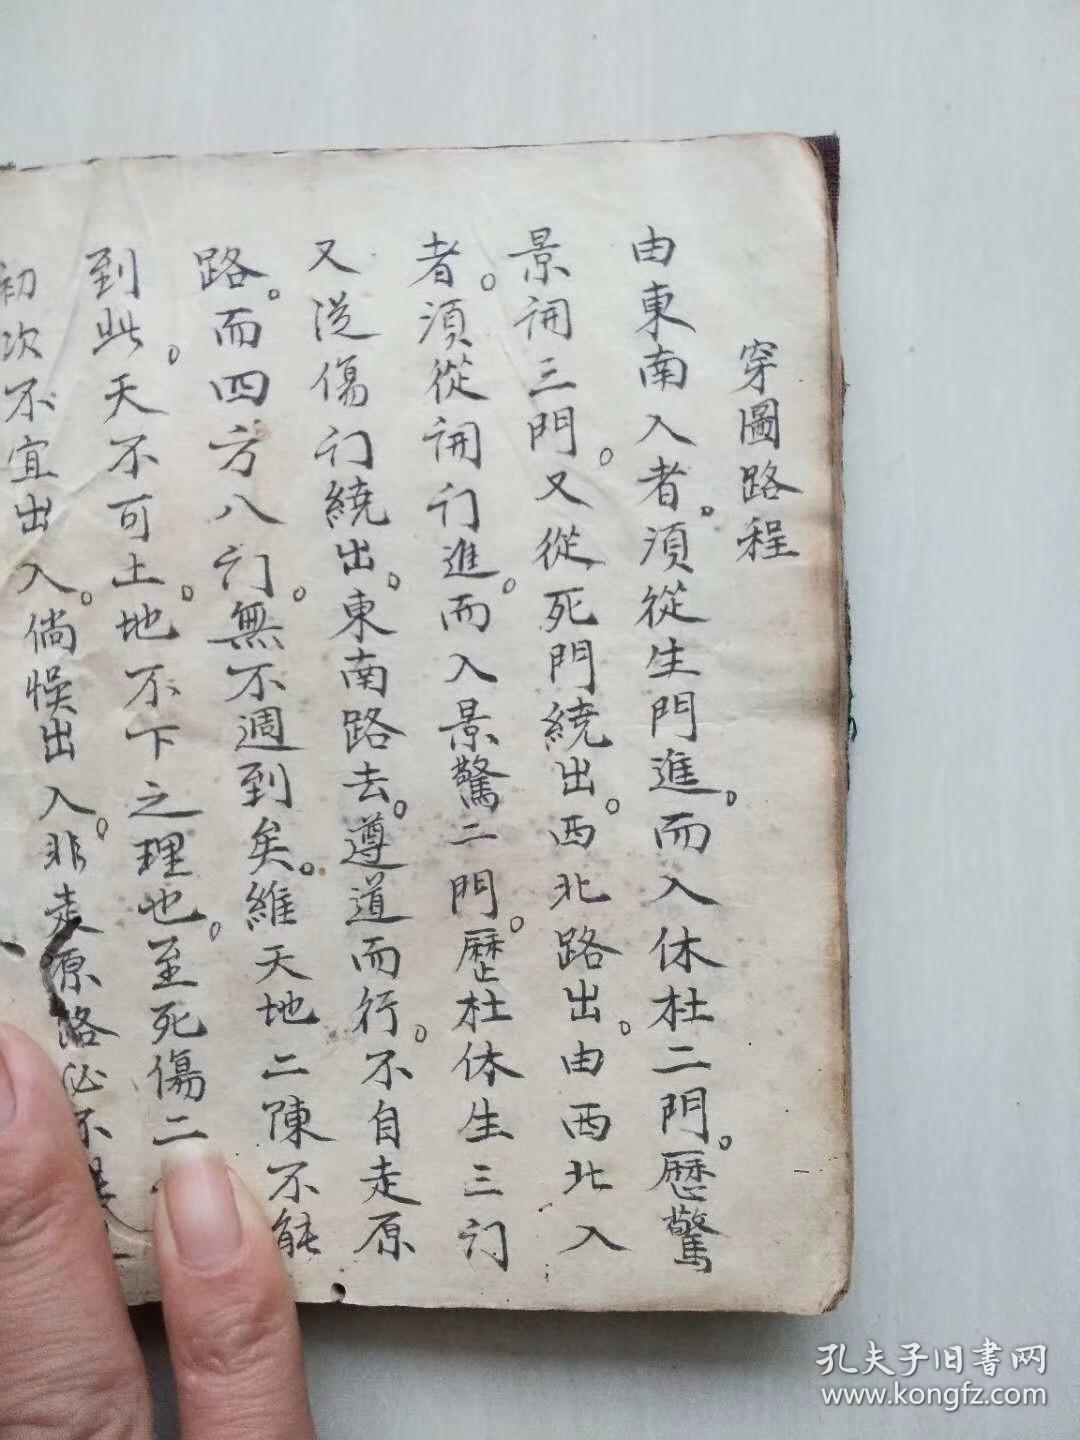 穿圖路程
由東南入者。須從生門進。而入休杜二門。歷驚
景開三門。又從死門繞出。西北路出。由西北入
者。須從開门進。而入景驚二門。歷杜休生三门
又從傷门繞出。東南路去。遵道而行。不自走原
路。而四方八门。無不週到矣。維天地二陳不能
到此。天不可土。地不下之理也。至死傷二
初次不宜出入。倘悞出入。非走原路必不
孔夫子旧書网
www.kongfz.com